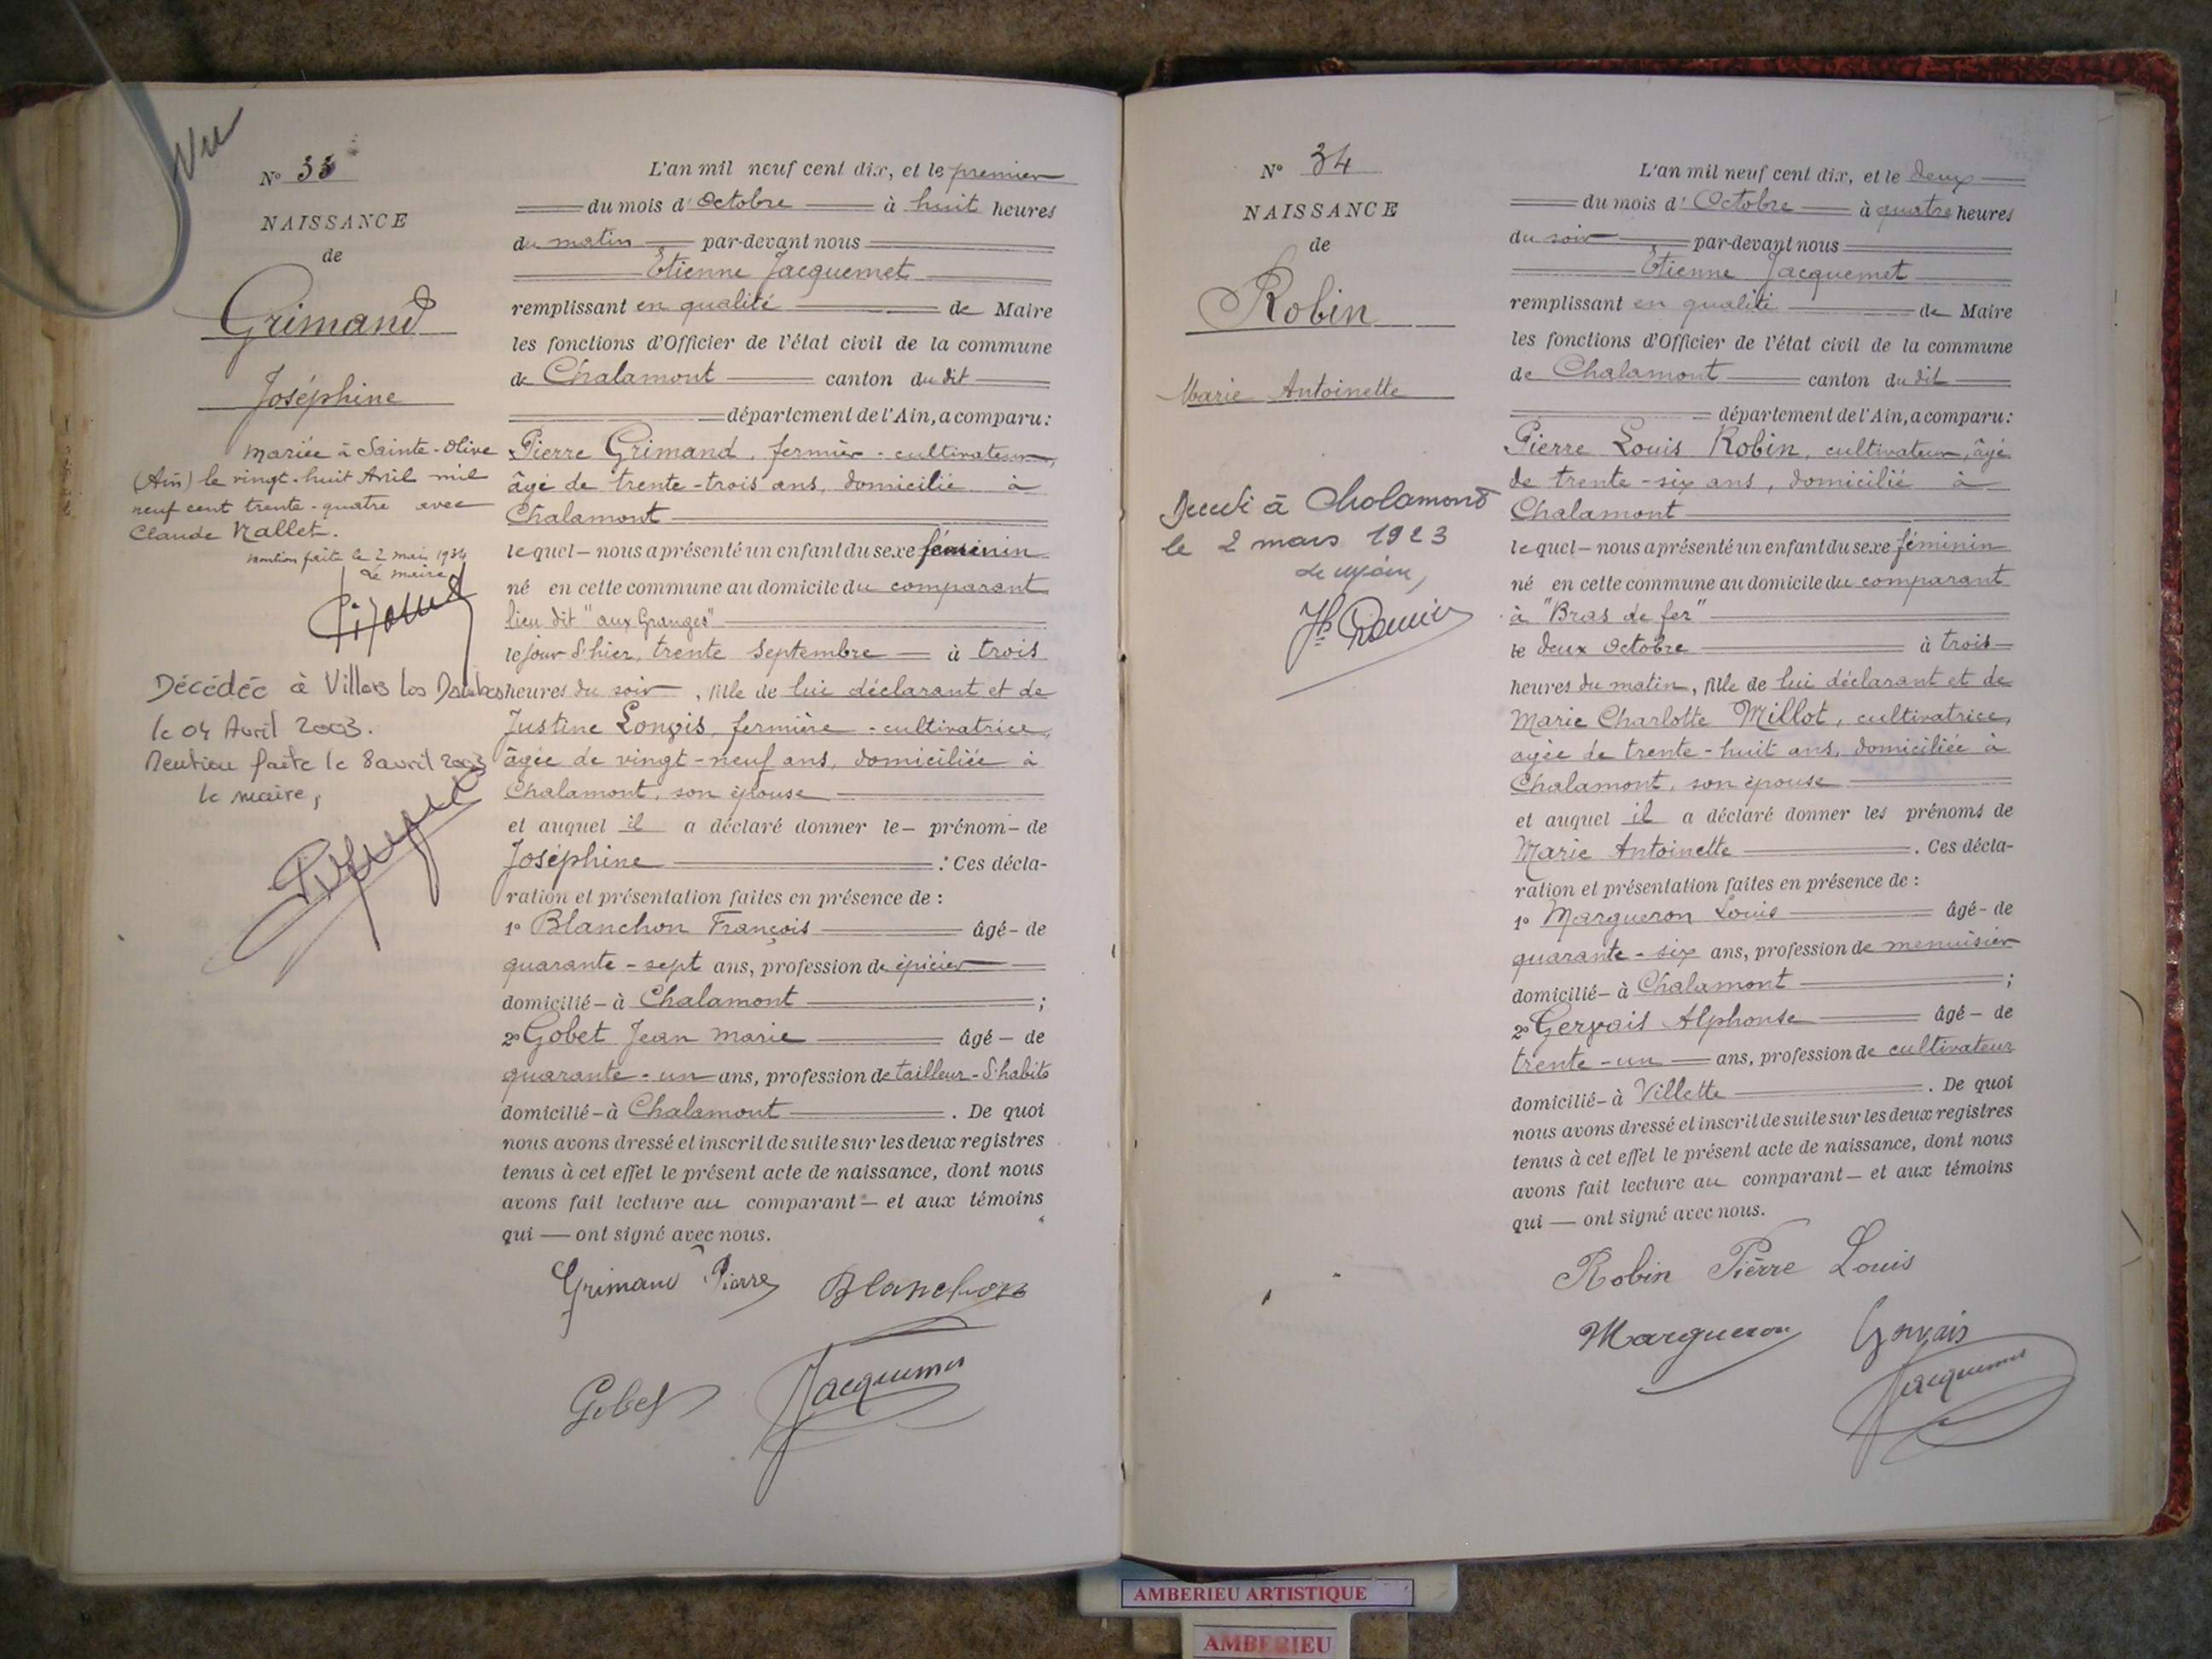 Vu
N° 33
NAISSANCE
de
Grimand
Joséphine
Mariée à Sainte-Olive
(Ain) le vingt-huit Avril mil
neuf cent trente-quatre avec
Claude Nallet.
Mention faite le 2 mai 1934
Le maire
Décédée à Villars les Dombes
le 04 Avril 2003.
Mention faite le 8 avril 2003
le maire,
L'an mil neuf cent dix, et le premier
du mois d'Octobre à huit heures
du matin par-devant nous
Etienne Jacquemet
remplissant en qualité de Maire
les fonctions d'Officier de l'état civil de la commune
de Chalamont canton du dit
département de l'Ain, a comparu :
Pierre Grimand, fermier-cultivateur,
âgé de trente-trois ans, domicilié à
Chalamont
lequel – nous a présenté un enfant du sexe féminin
né en cette commune au domicile du comparant
lieu dit "aux Granges"
le jour d'hier, trente septembre à trois
heures du soir, fille de lui déclarant et de
Justine Longis, fermière-cultivatrice,
âgée de vingt-neuf ans, domiciliée à
Chalamont, son épouse
et auquel il a déclaré donner le – prénom – de
Joséphine . Ces décla-
ration et présentation faites en présence de :
1° Blanchon François âgé – de
quarante-sept ans, profession de épicier
domicilié – à Chalamont ;
2° Gobet Jean Marie âgé – de
quarante-un ans, profession de tailleur-d'habits
domicilié – à Chalamont . De quoi
nous avons dressé et inscrit de suite sur les deux registres
tenus à cet effet le présent acte de naissance, dont nous
avons fait lecture au comparant – et aux témoins
qui — ont signé avec nous.
Grimand Pierre Blanchon
Gobet Jacquemet
N° 34
NAISSANCE
de
Robin
Marie Antoinette
Décédé à Chalamont
le 2 mars 1923
L'an mil neuf cent dix, et le deux
du mois d'Octobre à quatre heures
du soir par-devant nous
Etienne Jacquemet
remplissant en qualité de Maire
les fonctions d'Officier de l'état civil de la commune
de Chalamont canton du dit
département de l'Ain, a comparu :
Pierre Louis Robin, cultivateur, âgé
de trente-six ans, domicilié à
Chalamont
lequel – nous a présenté un enfant du sexe féminin
né en cette commune au domicile du comparant
à "Bras de fer"
le deux Octobre à trois
heures du matin, fille de lui déclarant et de
Marie Charlotte Millot, cultivatrice,
agée de trente-huit ans, domiciliée à
Chalamont, son épouse
et auquel il a déclaré donner les prénoms de
Marie Antoinette . Ces décla-
ration et présentation faites en présence de :
1° Margueron Louis âgé – de
quarante-six ans, profession de menuisier
domicilié – à Chalamont ;
2° Gervais Alphonse âgé – de
trente-un ans, profession de cultivateur
domicilié – à Villette . De quoi
nous avons dressé et inscrit de suite sur les deux registres
tenus à cet effet le présent acte de naissance, dont nous
avons fait lecture au comparant – et aux témoins
qui — ont signé avec nous.
Robin Pierre Louis
Margueron Gervais
Jacquemet
AMBERIEU ARTISTIQUE
AMBERIEU